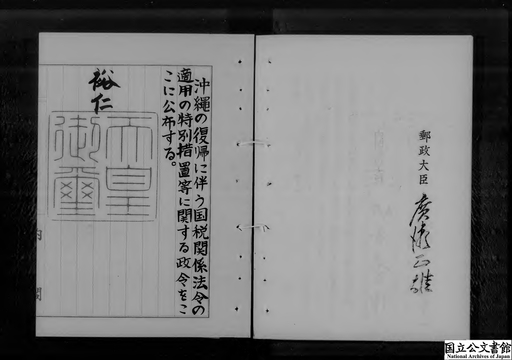 郵政大臣
廣瀬正雄
沖縄の復帰に伴う国税関係法令の
適用の特別措置等に関する政令をこ
こに公布する。
裕仁
天皇
御璽
内閣
国立公文書館
National Archives of Japan